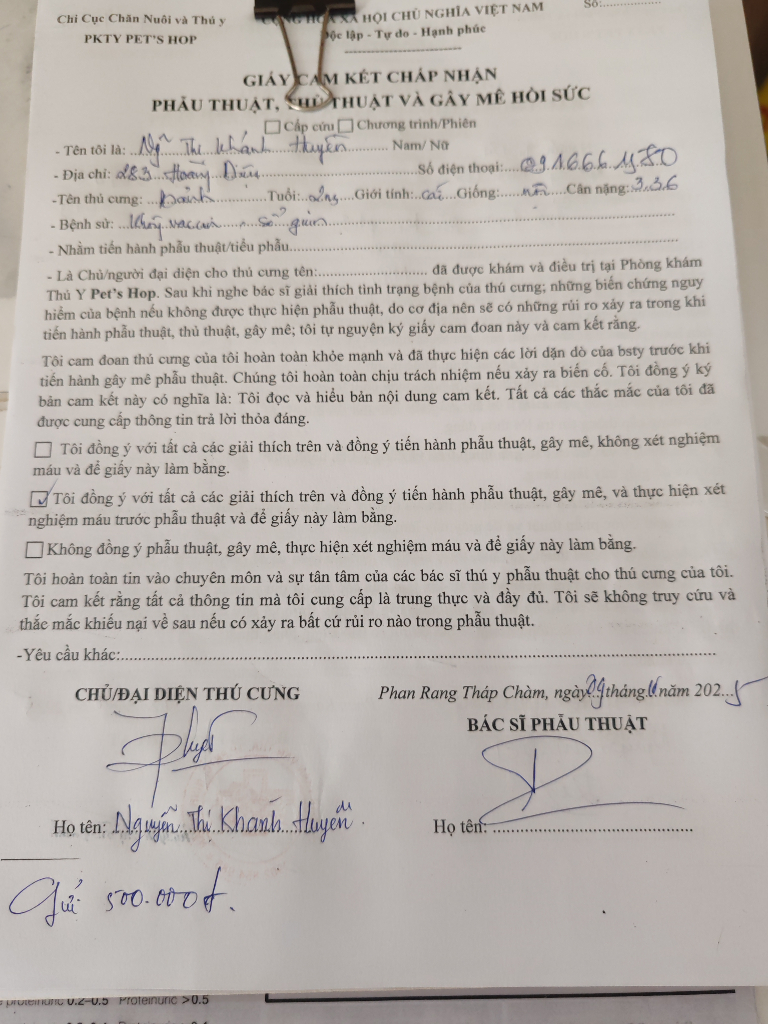 Chi Cục Chăn Nuôi và Thú y
CỘNG HÒA XÃ HỘI CHỦ NGHĨA VIỆT NAM
Số:
PKTY PET'S HOP
Độc lập - Tự do - Hạnh phúc
GIẤY CAM KẾT CHẤP NHẬN
PHẪU THUẬT, THỦ THUẬT VÀ GÂY MÊ HỒI SỨC
Cấp cứu Chương trình/Phiên
- Tên tôi là: Ng Thị Khánh Huyền Nam/ Nữ
- Địa chỉ: 283 Hoàng Diệu Số điện thoại: 091.666.1180
-Tên thú cưng: Tuổi: Giới tính: cái Giống: Cân nặng: 3.36
- Bệnh sử: sổ giun
- Nhằm tiến hành phẫu thuật/tiểu phẫu
- Là Chủ/người đại diện cho thú cưng tên: đã được khám và điều trị tại Phòng khám
Thú Y Pet's Hop. Sau khi nghe bác sĩ giải thích tình trạng bệnh của thú cưng; những biến chứng nguy
hiểm của bệnh nếu không được thực hiện phẫu thuật, do cơ địa nên sẽ có những rủi ro xảy ra trong khi
tiến hành phẫu thuật, thủ thuật, gây mê; tôi tự nguyện ký giấy cam đoan này và cam kết rằng.
Tôi cam đoan thú cưng của tôi hoàn toàn khỏe mạnh và đã thực hiện các lời dặn dò của bsty trước khi
tiến hành gây mê phẫu thuật. Chúng tôi hoàn toàn chịu trách nhiệm nếu xảy ra biến cố. Tôi đồng ý ký
bản cam kết này có nghĩa là: Tôi đọc và hiểu bản nội dung cam kết. Tất cả các thắc mắc của tôi đã
được cung cấp thông tin trả lời thỏa đáng.
Tôi đồng ý với tất cả các giải thích trên và đồng ý tiến hành phẫu thuật, gây mê, không xét nghiệm
máu và để giấy này làm bằng.
Tôi đồng ý với tất cả các giải thích trên và đồng ý tiến hành phẫu thuật, gây mê, và thực hiện xét
nghiệm máu trước phẫu thuật và để giấy này làm bằng.
Không đồng ý phẫu thuật, gây mê, thực hiện xét nghiệm máu và để giấy này làm bằng.
Tôi hoàn toàn tin vào chuyên môn và sự tân tâm của các bác sĩ thú y phẫu thuật cho thú cưng của tôi.
Tôi cam kết rằng tất cả thông tin mà tôi cung cấp là trung thực và đầy đủ. Tôi sẽ không truy cứu và
thắc mắc khiếu nại về sau nếu có xảy ra bất cứ rủi ro nào trong phẫu thuật.
-Yêu cầu khác:
CHỦ/ĐẠI DIỆN THÚ CƯNG
Phan Rang Tháp Chàm, ngày 29 tháng 11 năm 2025
BÁC SĨ PHẪU THUẬT
Họ tên: Nguyễn Thị Khánh Huyền
Họ tên:
Gửi 500.000đ.
proteinuric 0.2–0.5 Proteinuric >0.5